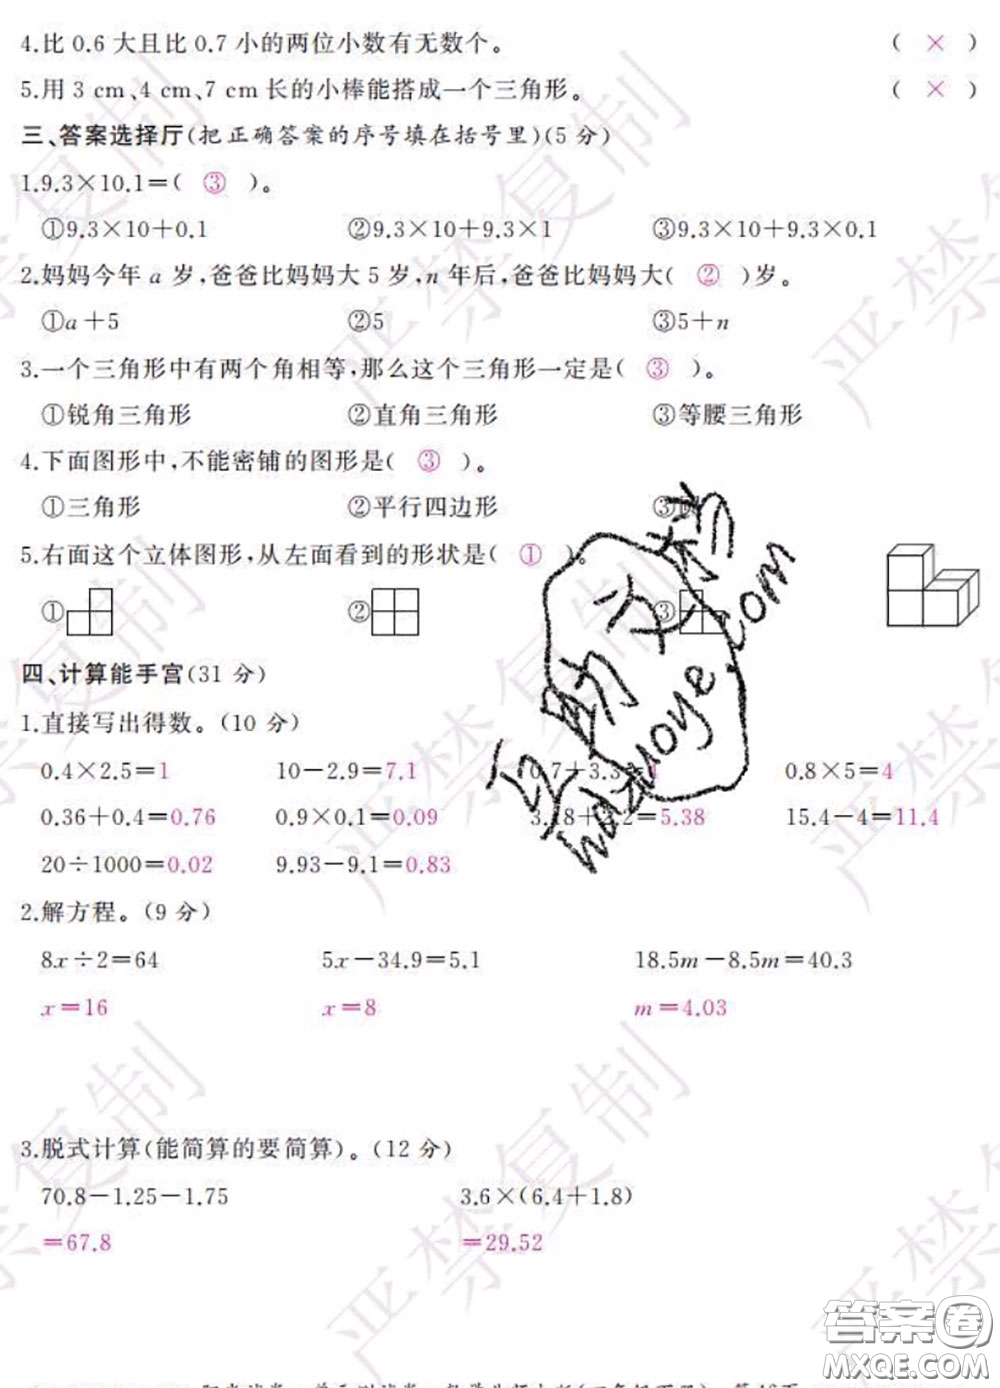 4.比 0.6 大且比 0.7 小的两位小数有无数个。 ( × )
5.用 3 cm、4 cm、7 cm 长的小棒能搭成一个三角形。 ( × )
三、答案选择厅(把正确答案的序号填在括号里)(5 分)
1.9.3×10.1=( ③ )。
①9.3×10+0.1 ②9.3×10+9.3×1 ③9.3×10+9.3×0.1
2.妈妈今年 a 岁,爸爸比妈妈大 5 岁,n 年后,爸爸比妈妈大( ② )岁。
①a+5 ②5 ③5+n
3.一个三角形中有两个角相等,那么这个三角形一定是( ③ )。
①锐角三角形 ②直角三角形 ③等腰三角形
4.下面图形中,不能密铺的图形是( ③ )。
①三角形 ②平行四边形 ③
5.右面这个立体图形,从左面看到的形状是( ① )。
① ② ③
四、计算能手宫(31 分)
1.直接写出得数。(10 分)
0.4×2.5=1 10-2.9=7.1 0.7+3.3 0.8×5=4
0.36+0.4=0.76 0.9×0.1=0.09 =5.38 15.4-4=11.4
20÷1000=0.02 9.93-9.1=0.83
2.解方程。(9 分)
8x÷2=64 5x-34.9=5.1 18.5m-8.5m=40.3
x=16 x=8 m=4.03
3.脱式计算(能简算的要简算)。(12 分)
70.8-1.25-1.75 3.6×(6.4+1.8)
=67.8 =29.52
严禁复制
hdzuoye.com
答案圈
MXQE.COM